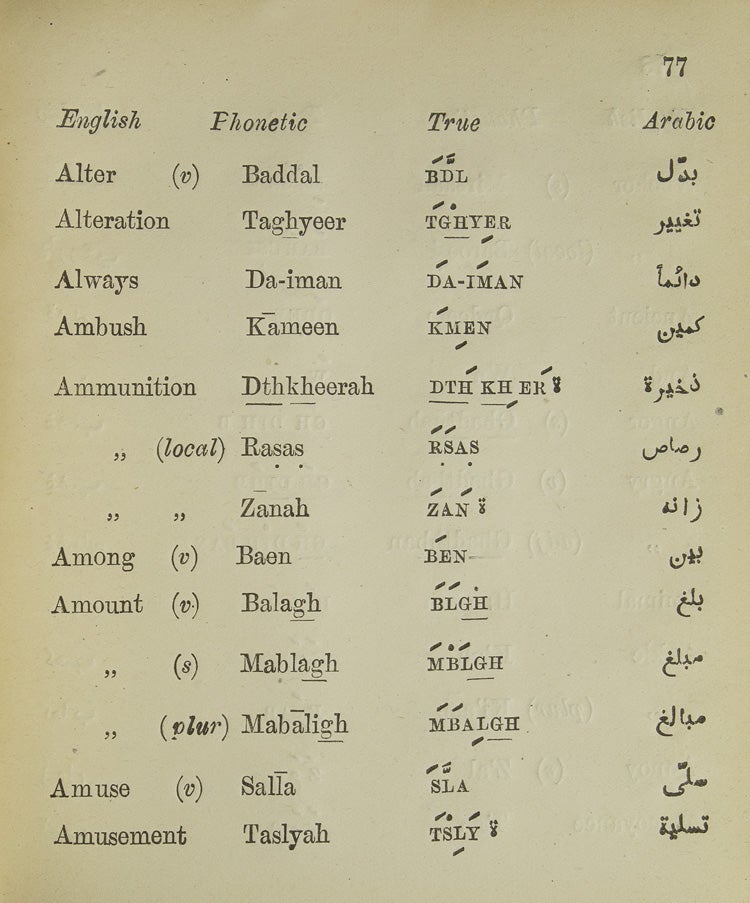 77
English Phonetic True Arabic
Alter (v) Baddal BDL بدّل
Alteration Taghyeer TGHYER تغيير
Always Da-iman DA-IMAN دائماً
Ambush Kāmeen KMEN كمين
Ammunition Dthkheerah DTH KH ER ة ذخيرة
„ (local) Rasas RSAS رصاص
„ „ Zānah ZAN ة زانه
Among (v) Baen BEN بين
Amount (v) Balagh BLGH بلغ
„ (s) Mablagh MBLGH مبلغ
„ (plur) Mabāligh MBALGH مبالغ
Amuse (v) Sallā SLA سلّى
Amusement Taslyah TSLY ة تسلية